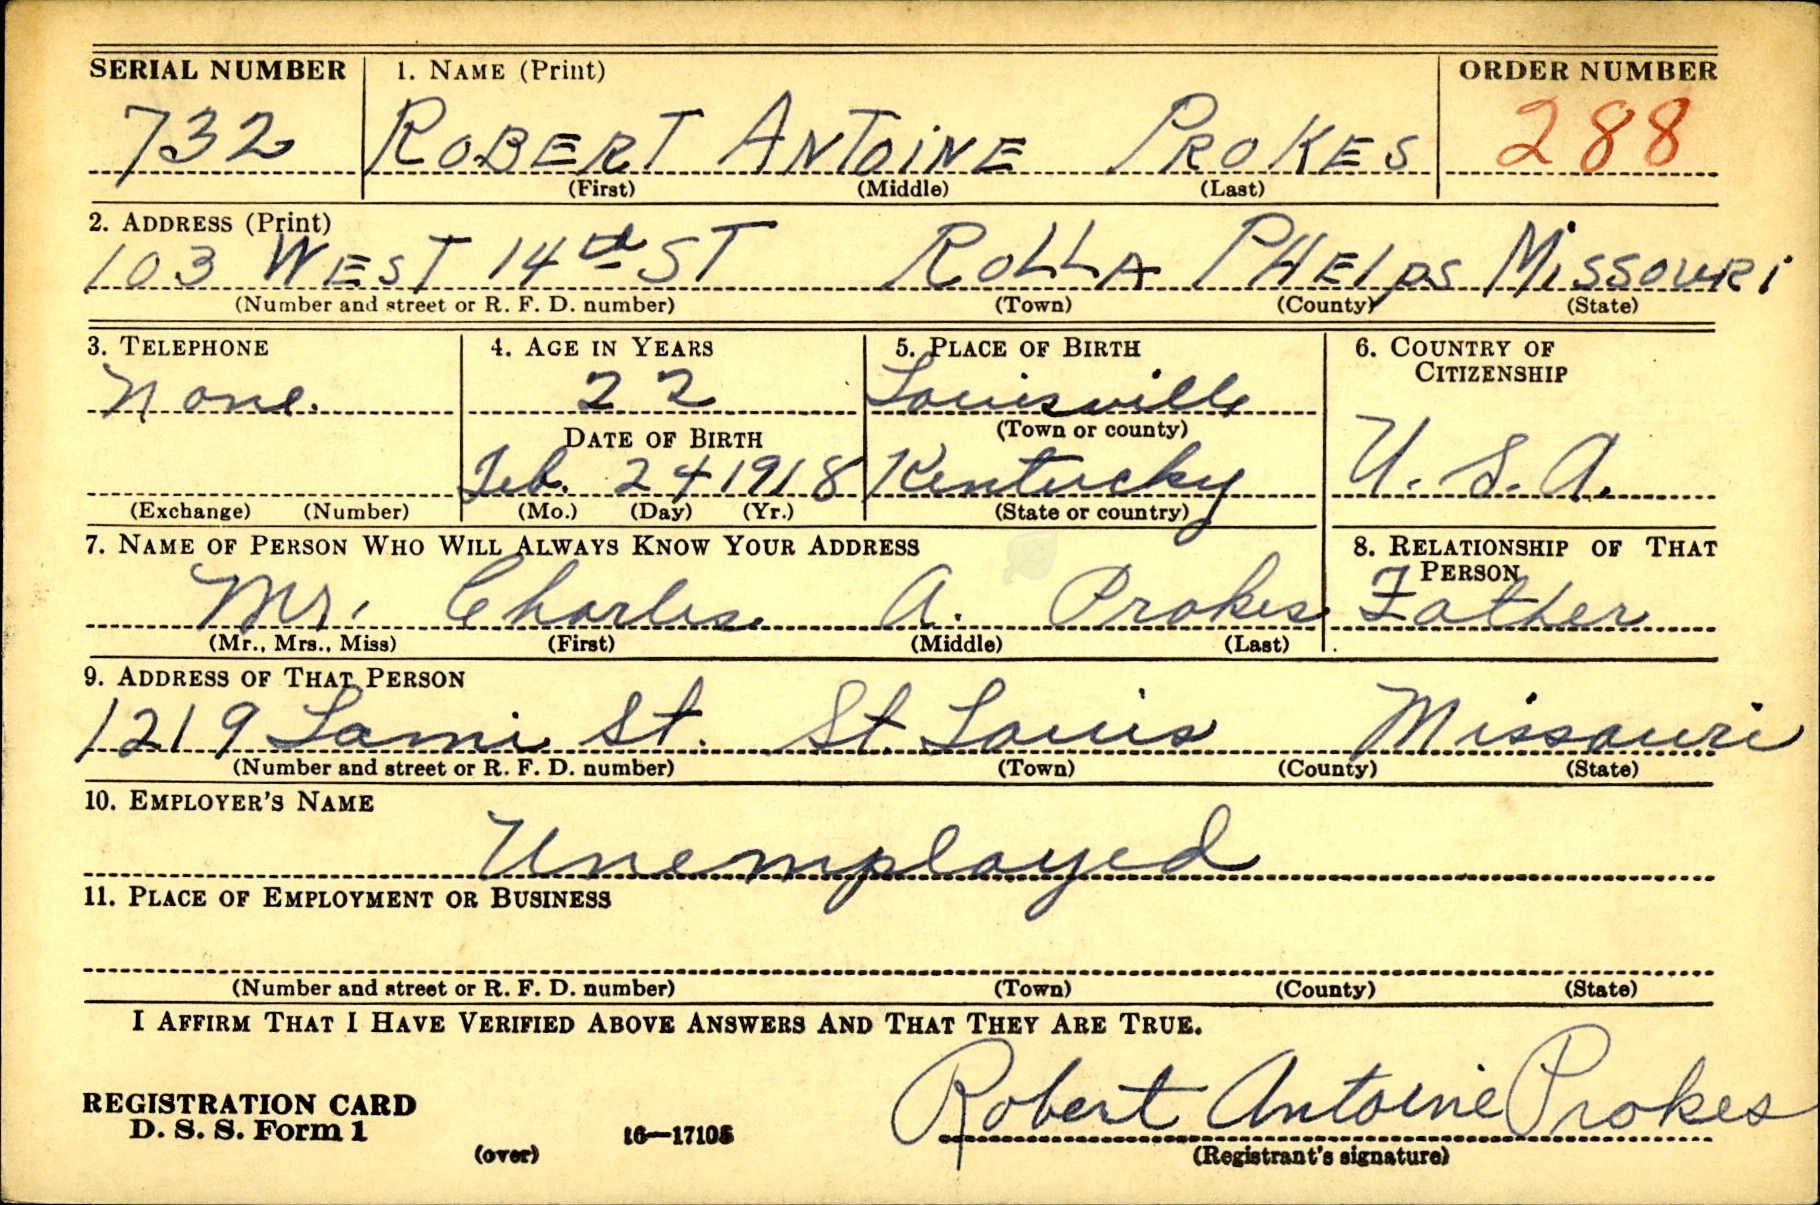 SERIAL NUMBER 1. NAME (Print) ORDER NUMBER
732 ROBERT ANTOINE PROKES 288
(First) (Middle) (Last)
2. ADDRESS (Print)
103 WEST 14th ST ROLLA PHELPS MISSOURI
(Number and street or R. F. D. number) (Town) (County) (State)
3. TELEPHONE 4. AGE IN YEARS 5. PLACE OF BIRTH 6. COUNTRY OF
CITIZENSHIP
None. 22 Louisville
DATE OF BIRTH (Town or county)
Feb. 24 1918 Kentucky U. S. A.
(Exchange) (Number) (Mo.) (Day) (Yr.) (State or country)
7. NAME OF PERSON WHO WILL ALWAYS KNOW YOUR ADDRESS 8. RELATIONSHIP OF THAT
PERSON
Mr. Charles A. Prokes Father
(Mr., Mrs., Miss) (First) (Middle) (Last)
9. ADDRESS OF THAT PERSON
1219 Lami St. St. Louis Missouri
(Number and street or R. F. D. number) (Town) (County) (State)
10. EMPLOYER'S NAME
Unemployed
11. PLACE OF EMPLOYMENT OR BUSINESS
(Number and street or R. F. D. number) (Town) (County) (State)
I AFFIRM THAT I HAVE VERIFIED ABOVE ANSWERS AND THAT THEY ARE TRUE.
Robert Antoine Prokes
REGISTRATION CARD
D. S. S. Form 1
(over) 16—17105 (Registrant's signature)